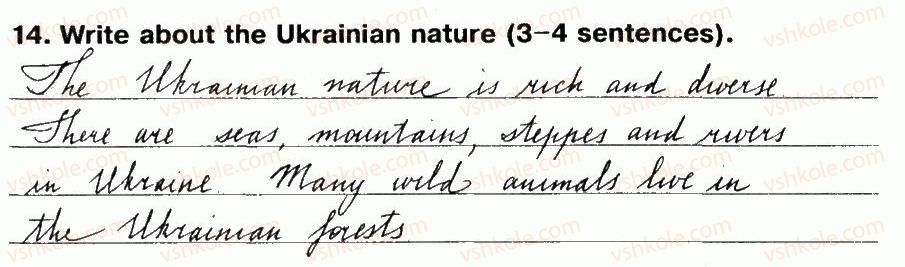 14. Write about the Ukrainian nature (3–4 sentences).
The Ukrainian nature is rich and diverse
There are seas, mountains, steppes and rivers
in Ukraine Many wild animals live in
the Ukrainian forests